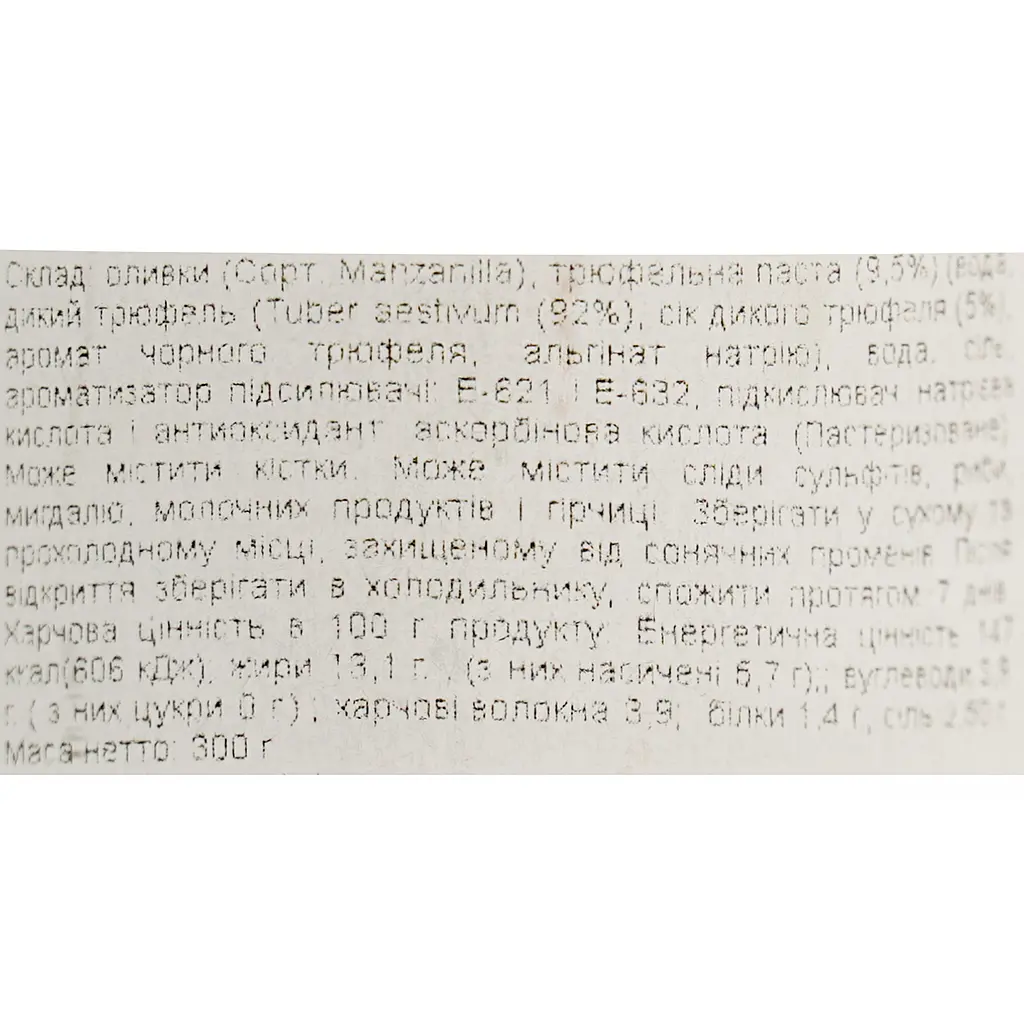 Склад: оливки (Сорт. Manzanilla), трюфельна паста (9,5%) (вода,
дикий трюфель (Tuber aestivum (92%), сік дикого трюфеля (5%),
аромат чорного трюфеля, альгінат натрію), вода, сіль,
ароматизатор підсилювачі: Е-621 і Е-632, підкислювач
кислота і антиоксидант: аскорбінова кислота (Пастеризоване)
Може містити кістки. Може містити сліди сульфітів, риби,
мигдалю, молочних продуктів і гірчиці. Зберігати у сухому та
прохолодному місці, захищеному від сонячних променів. Після
відкриття зберігати в холодильнику, спожити протягом 7 днів.
Харчова цінність в 100 г продукту: Енергетична цінність 147
ккал(606 кДж); жири 13,1 г. , (з них насичені 6,7 г);; вуглеводи
г. ( з них цукри 0 г) ; харчові волокна 3,9; білки 1,4 г, сіль
Маса-нетто: 300 г